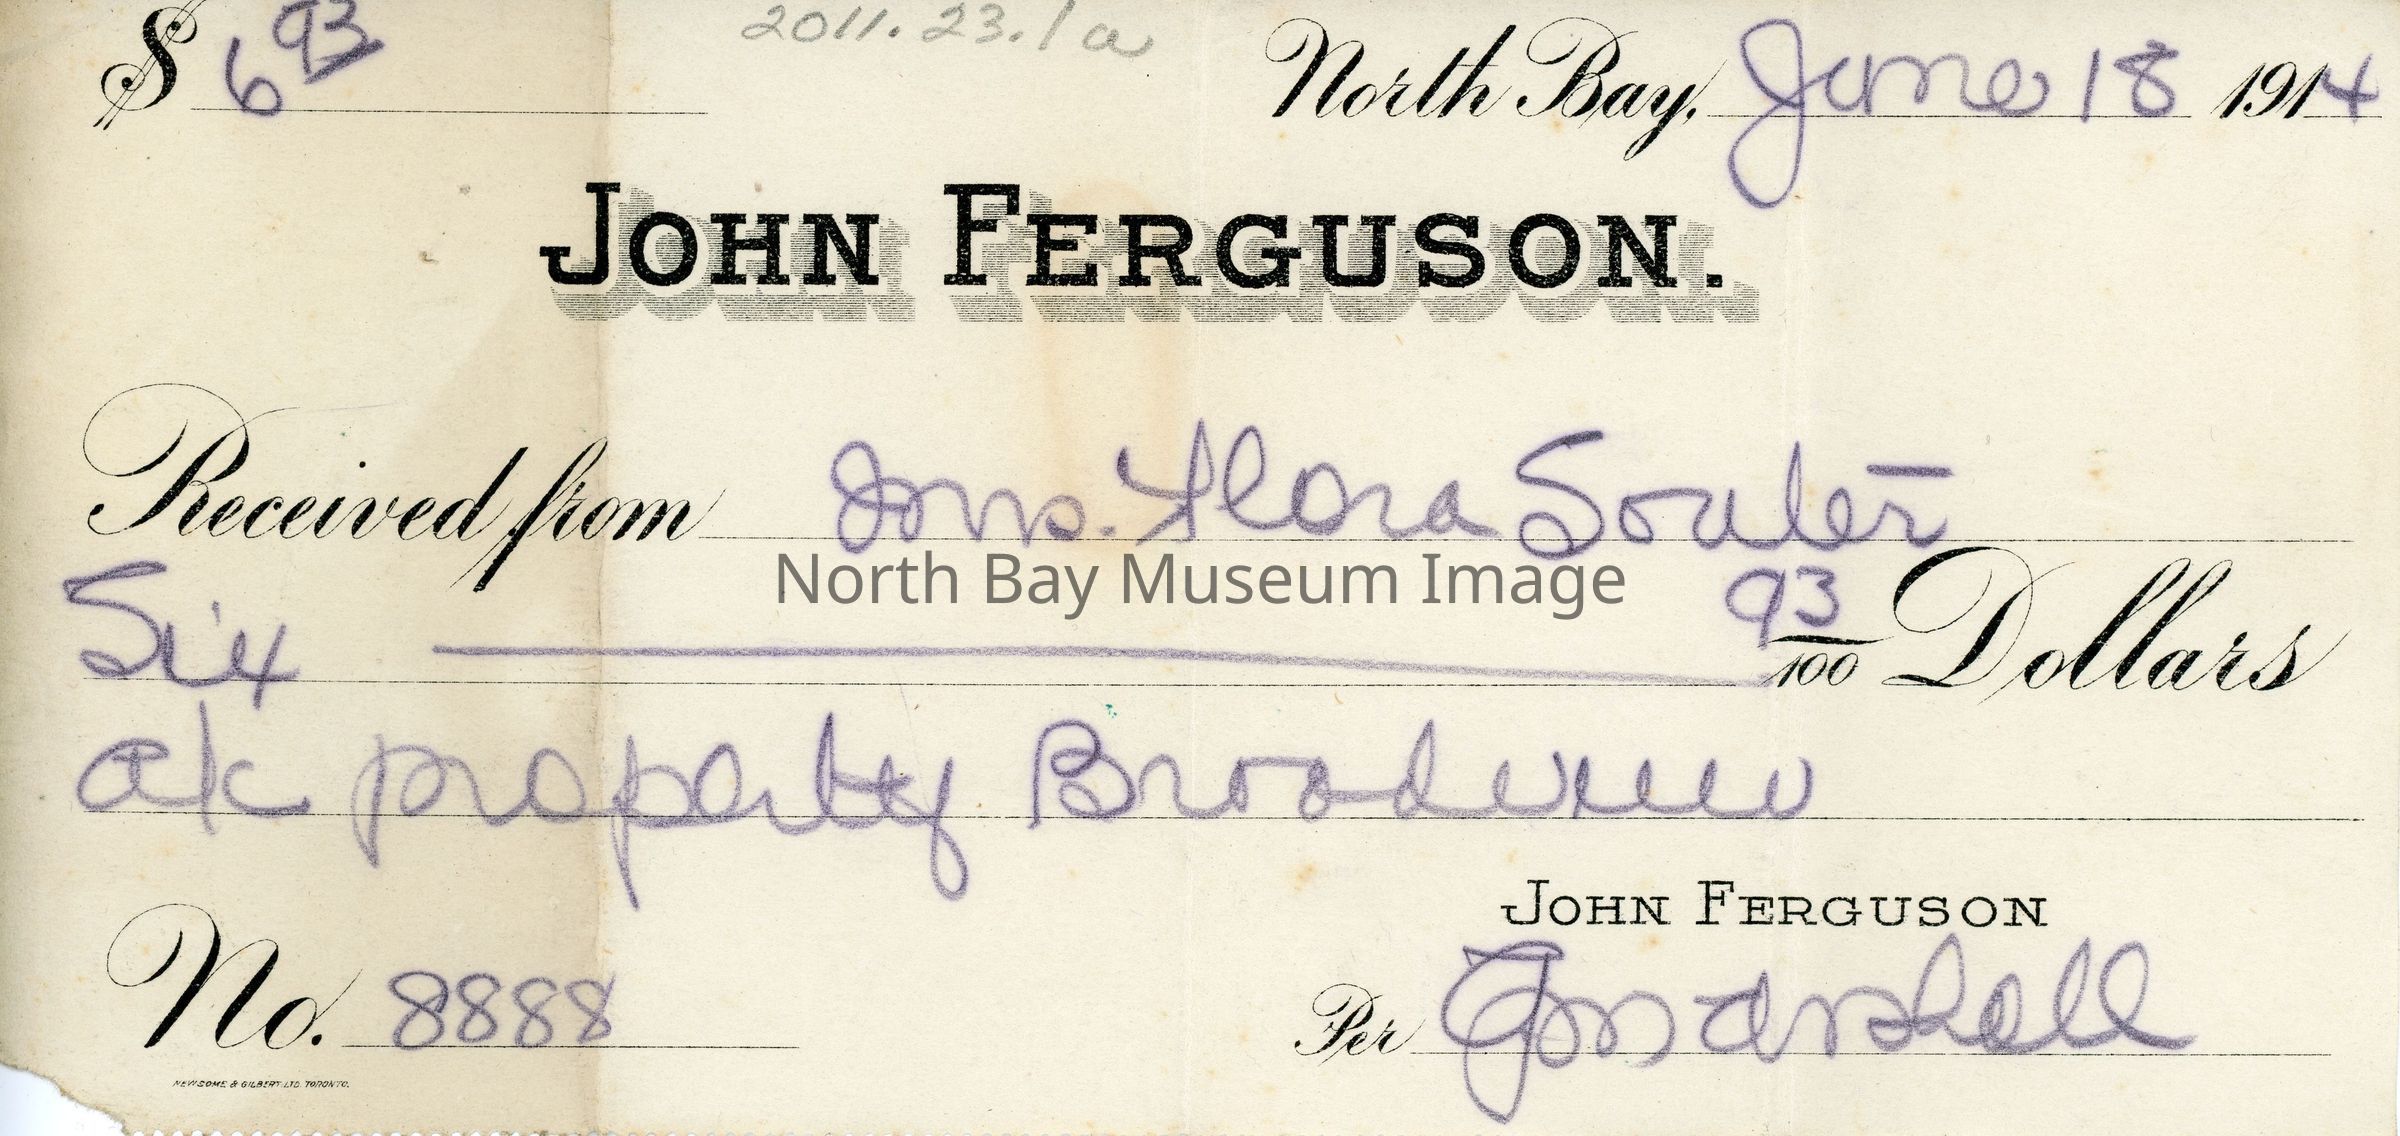 $ 6 93 2011.23.1a North Bay, June 18 1914
JOHN FERGUSON.
Received from Mrs. Flora Souter
North Bay Museum Image
Six 93/100 Dollars
a/c property Broadview
JOHN FERGUSON
No. 8888 Per Marshall
NEWSOME & GILBERT, LTD. TORONTO.